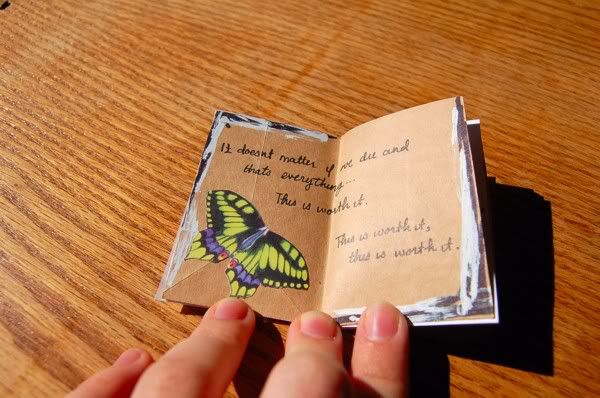 It doesnt matter if we die and
thats everything...
This is worth it.
This is worth it,
this is worth it.